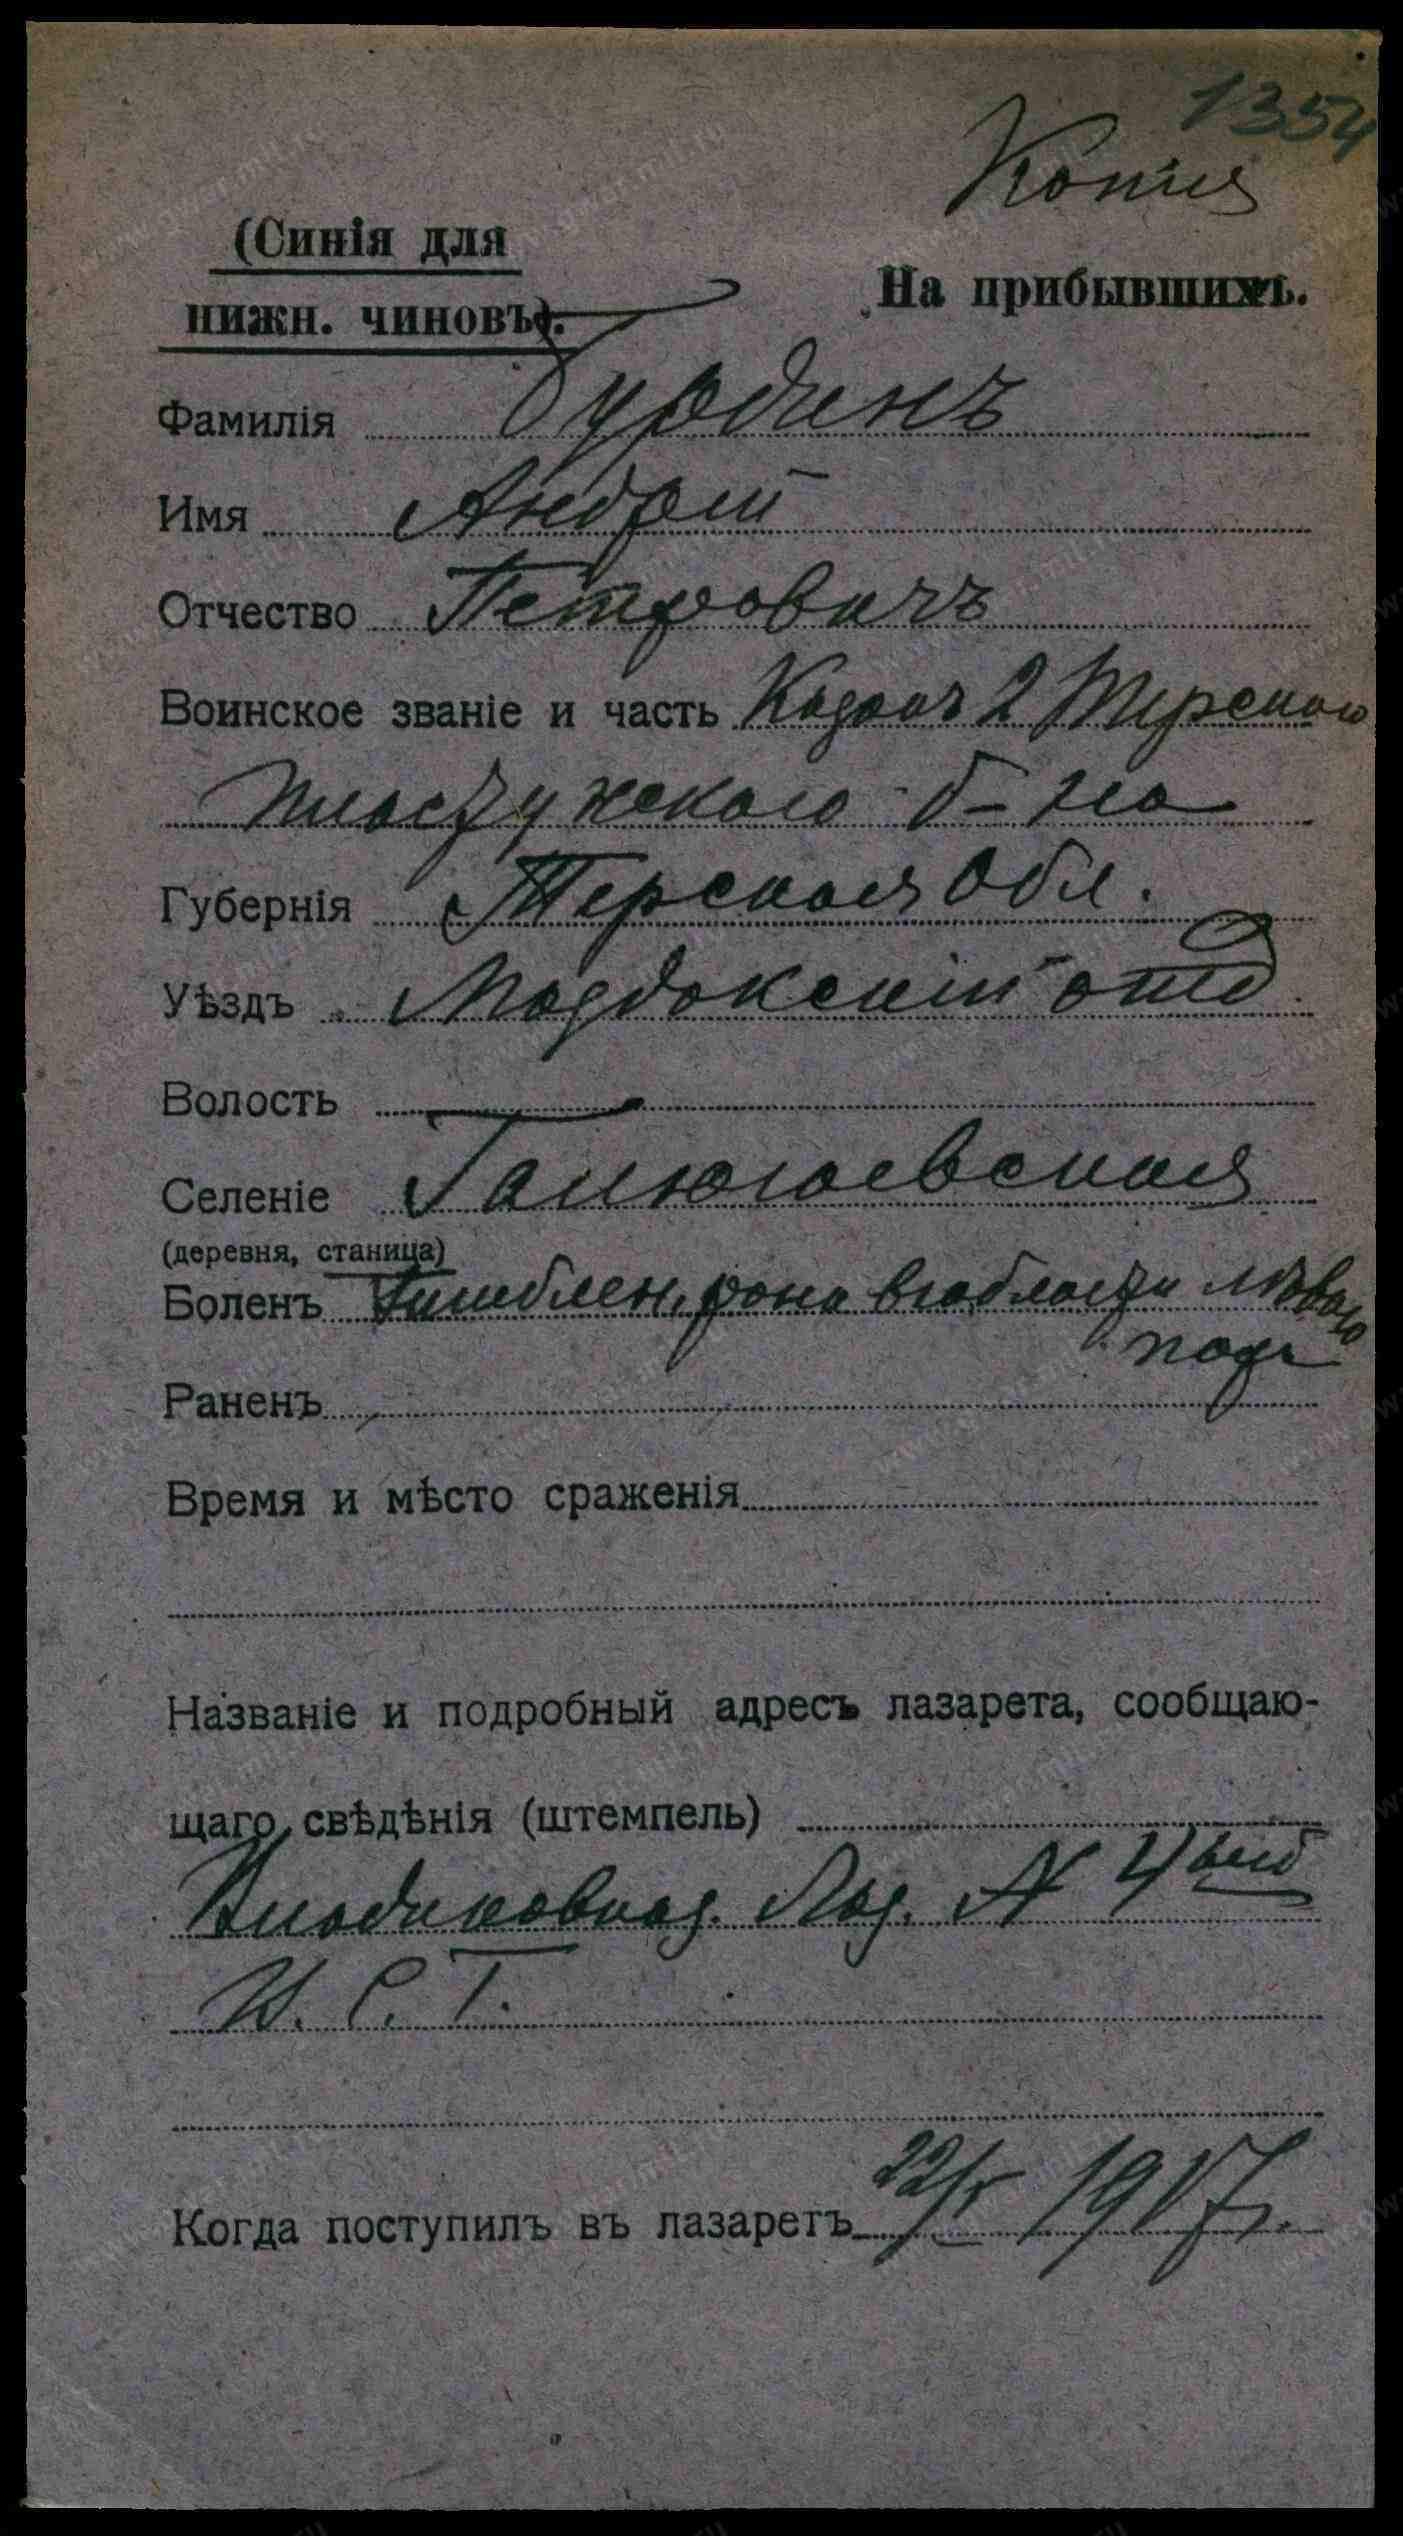 1354
Копія
(Синія для
нижн. чиновъ).
На прибывшихъ.
Фамилія Гурдинъ
Имя Андрей
Отчество Петровичъ
Воинское званіе и часть Казакъ 2 Терского
пластунского б-на
Губернія Терская Обл.
Уѣздъ Моздокскій отд.
Волость
Селеніе Галюгаевская
(деревня, станица)
Боленъ рана в области лѣваго
Раненъ
Время и мѣсто сраженія
Названіе и подробный адресъ лазарета, сообщаю-
щаго свѣдѣнія (штемпель)
Владикавказ. Лаз. N 4
И. С. Г.
Когда поступилъ въ лазаретъ 22/V 1917 г.